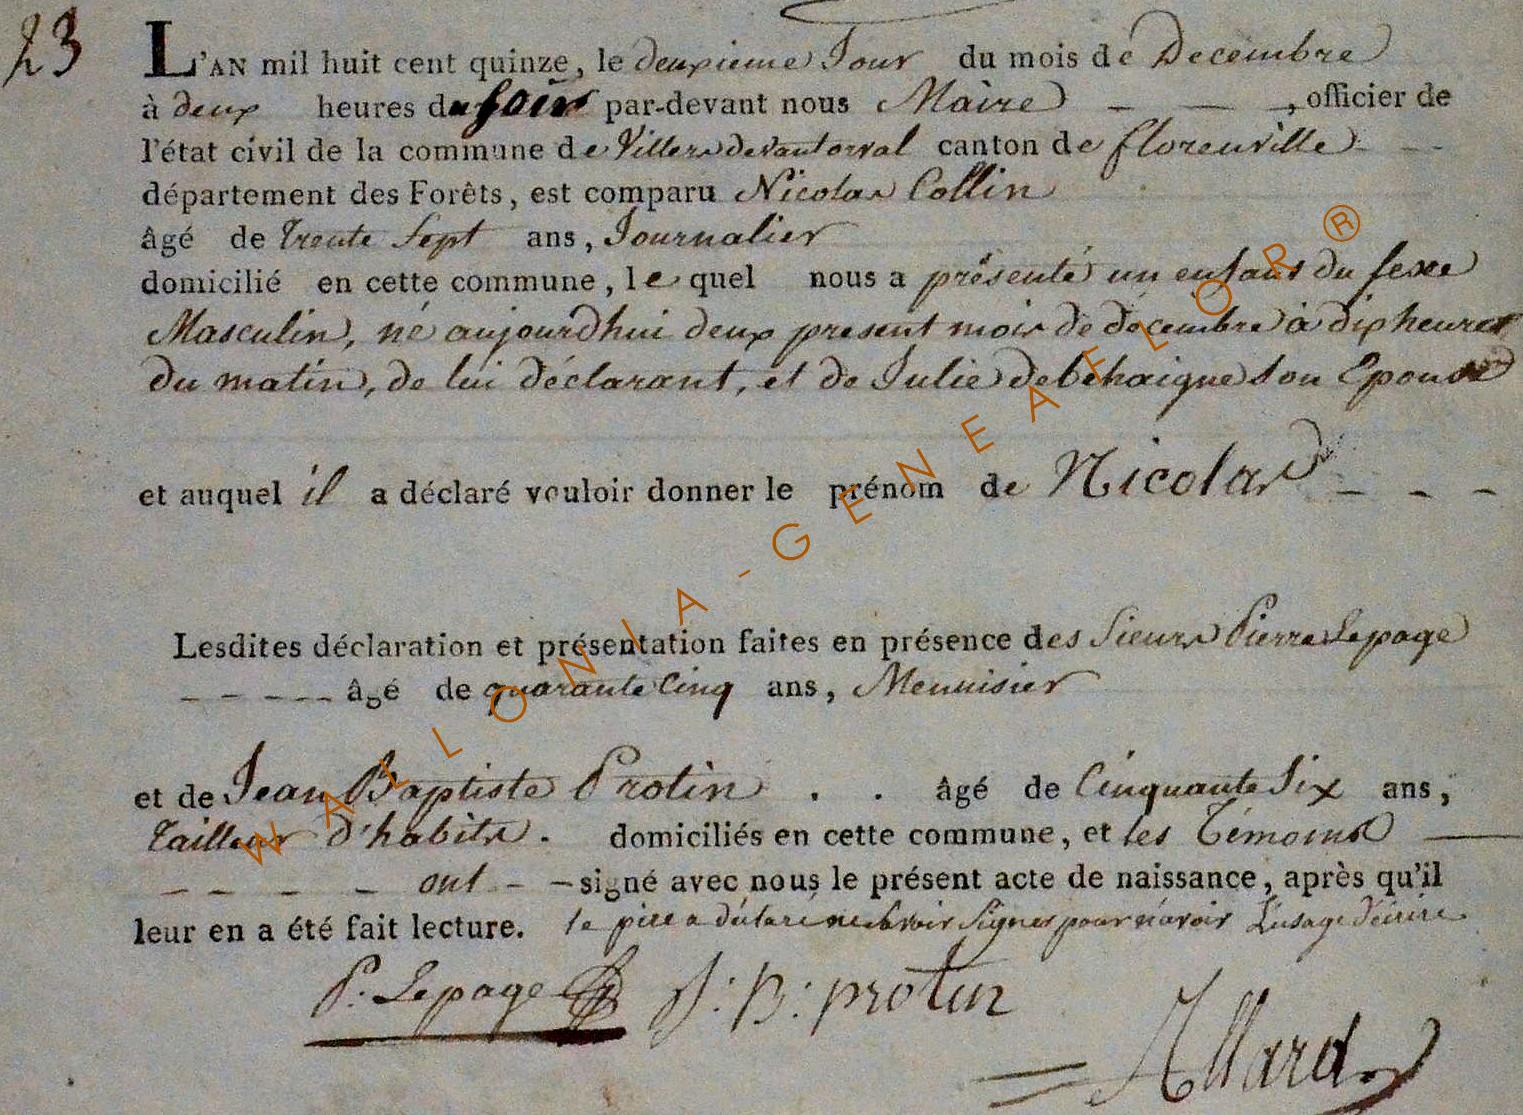 23
L'AN mil huit cent quinze, le deuxieme Jour du mois de Decembre
à deux heures du soir par-devant nous Maire - - -, officier de
l'état civil de la commune de Villersdevantorval canton de florenville - -
département des Forêts, est comparu Nicolas Collin
âgé de Trente Sept ans, Journalier
domicilié en cette commune, le quel nous a présenté un enfant du sexe
Masculin, né aujourdhui deux present mois de décembre à dix heures
du matin, de lui déclarant, et de Julie debehaigne son Epouse
et auquel il a déclaré vouloir donner le prénom de Nicolas - - -
Lesdites déclaration et présentation faites en présence des Sieurs Pierre Lepage
- - - - - âgé de quarante Cinq ans, Menuisier
et de Jean Baptiste Protin . . âgé de Cinquante Six ans,
Tailleur d'habits. domiciliés en cette commune, et les Témoins -
- - - - ont - - signé avec nous le présent acte de naissance, après qu'il
leur en a été fait lecture. le pere a déclaré ne savoir Signer pour n'avoir L'usage d'écrire.
P. Lepage J: B: protin
Allard
WALLONIA-GENEAFLOR®